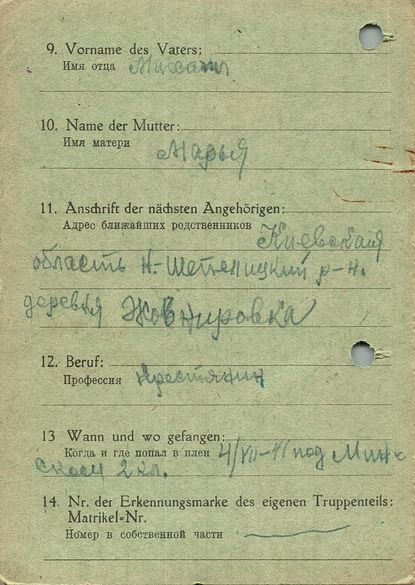 9. Vorname des Vaters:
Имя отца Михаил
10. Name der Mutter:
Имя матери Марья
11. Anschrift der nächsten Angehörigen:
Адрес ближайших родственников Киевская
область Н-Шепелицкий р-н.
деревья Жовнировка
12. Beruf:
Профессия крестянин
13 Wann und wo gefangen:
Когда и где попал в плен 4/VII-41 под Мин-
ском 2 кл.
14. Nr. der Erkennungsmarke des eigenen Truppenteils:
Matrikel-Nr.
Номер в собственной части